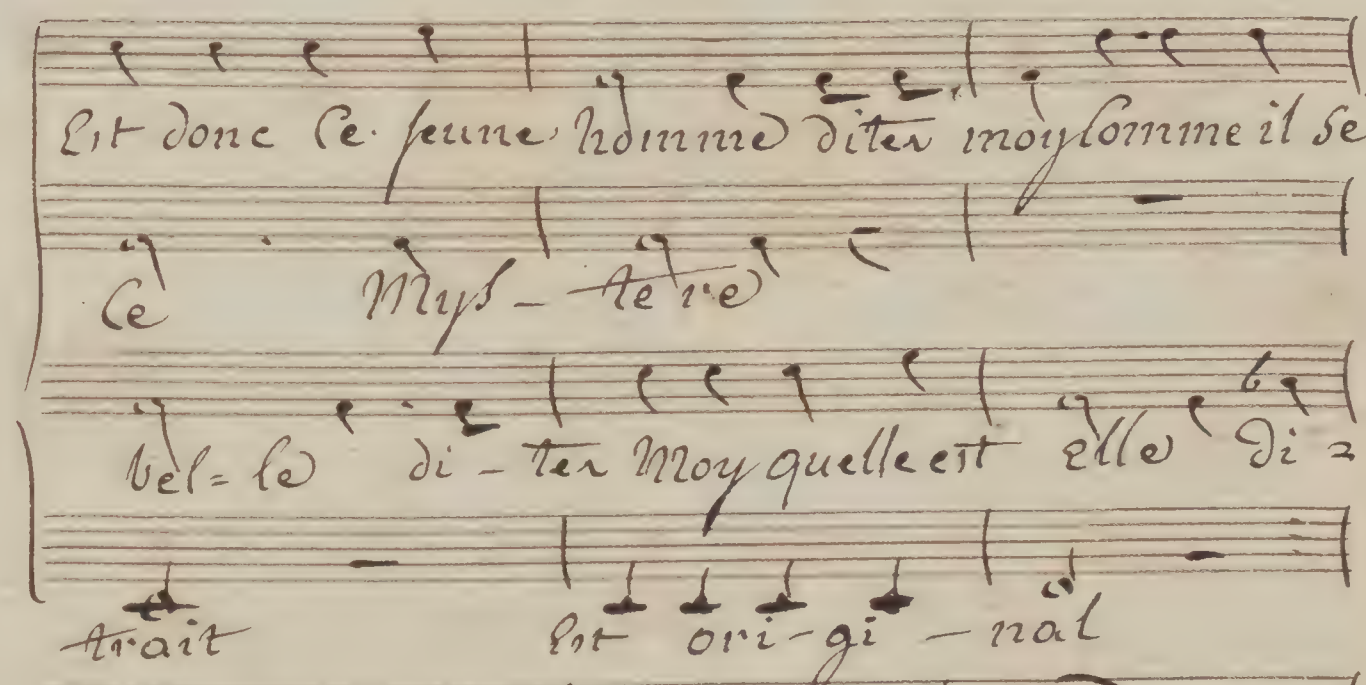 Est donc Ce jeune homme dites moy Comme il Se
Ce Mys - te re
vel = le di - tes Moy quelle est elle di =
trait Est ori - gi - nal